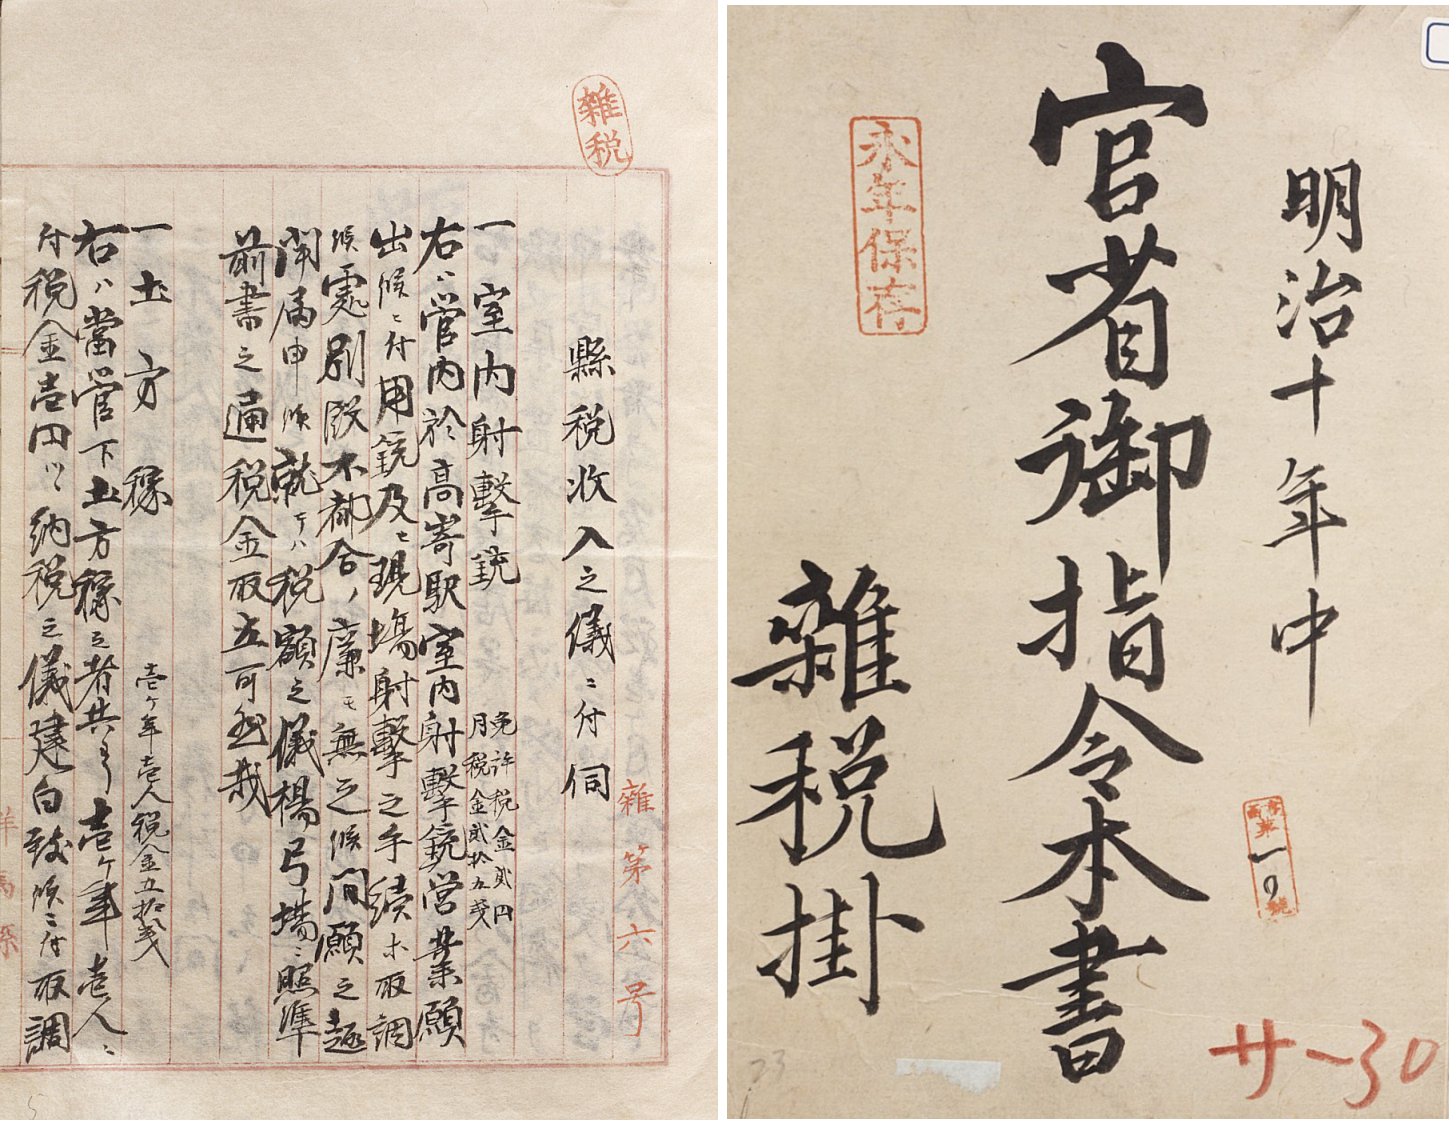 明治十年中
官省御指令本書
雑税掛
永年保存
第一〇號
サー30
23
雜税
雜第 六号
縣税収入之儀ニ付伺
一室内射撃銃
免許税金貳円
月税金貳拾五戔
右ハ管内於高寄駅室内射撃銃営業願
出候ニ付用銃及ヒ現場射撃之手續ホ取調
候處別段不都合ノ廉モ無之候間願之趣
聞届申候就テハ税額之儀楊弓場ニ照準
前書之通税金取立可然哉
一土方稼
壱ケ年壱人税金五拾戔
右ハ當管下土方稼之者共ヨリ壱ケ年壱人ニ
付税金壱円ツヽ納税之儀建白致候ニ付取調
5